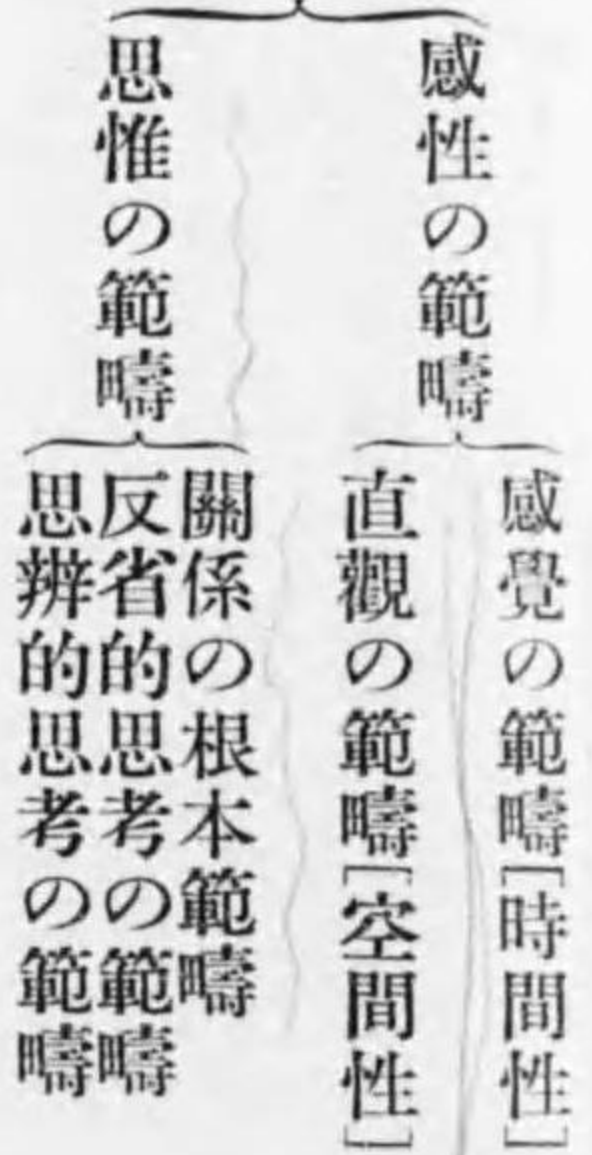 感性の範疇
感覺の範疇[時間性]
直觀の範疇[空間性]
思惟の範疇
關係の根本範疇
反省的思考の範疇
思辨的思考の範疇